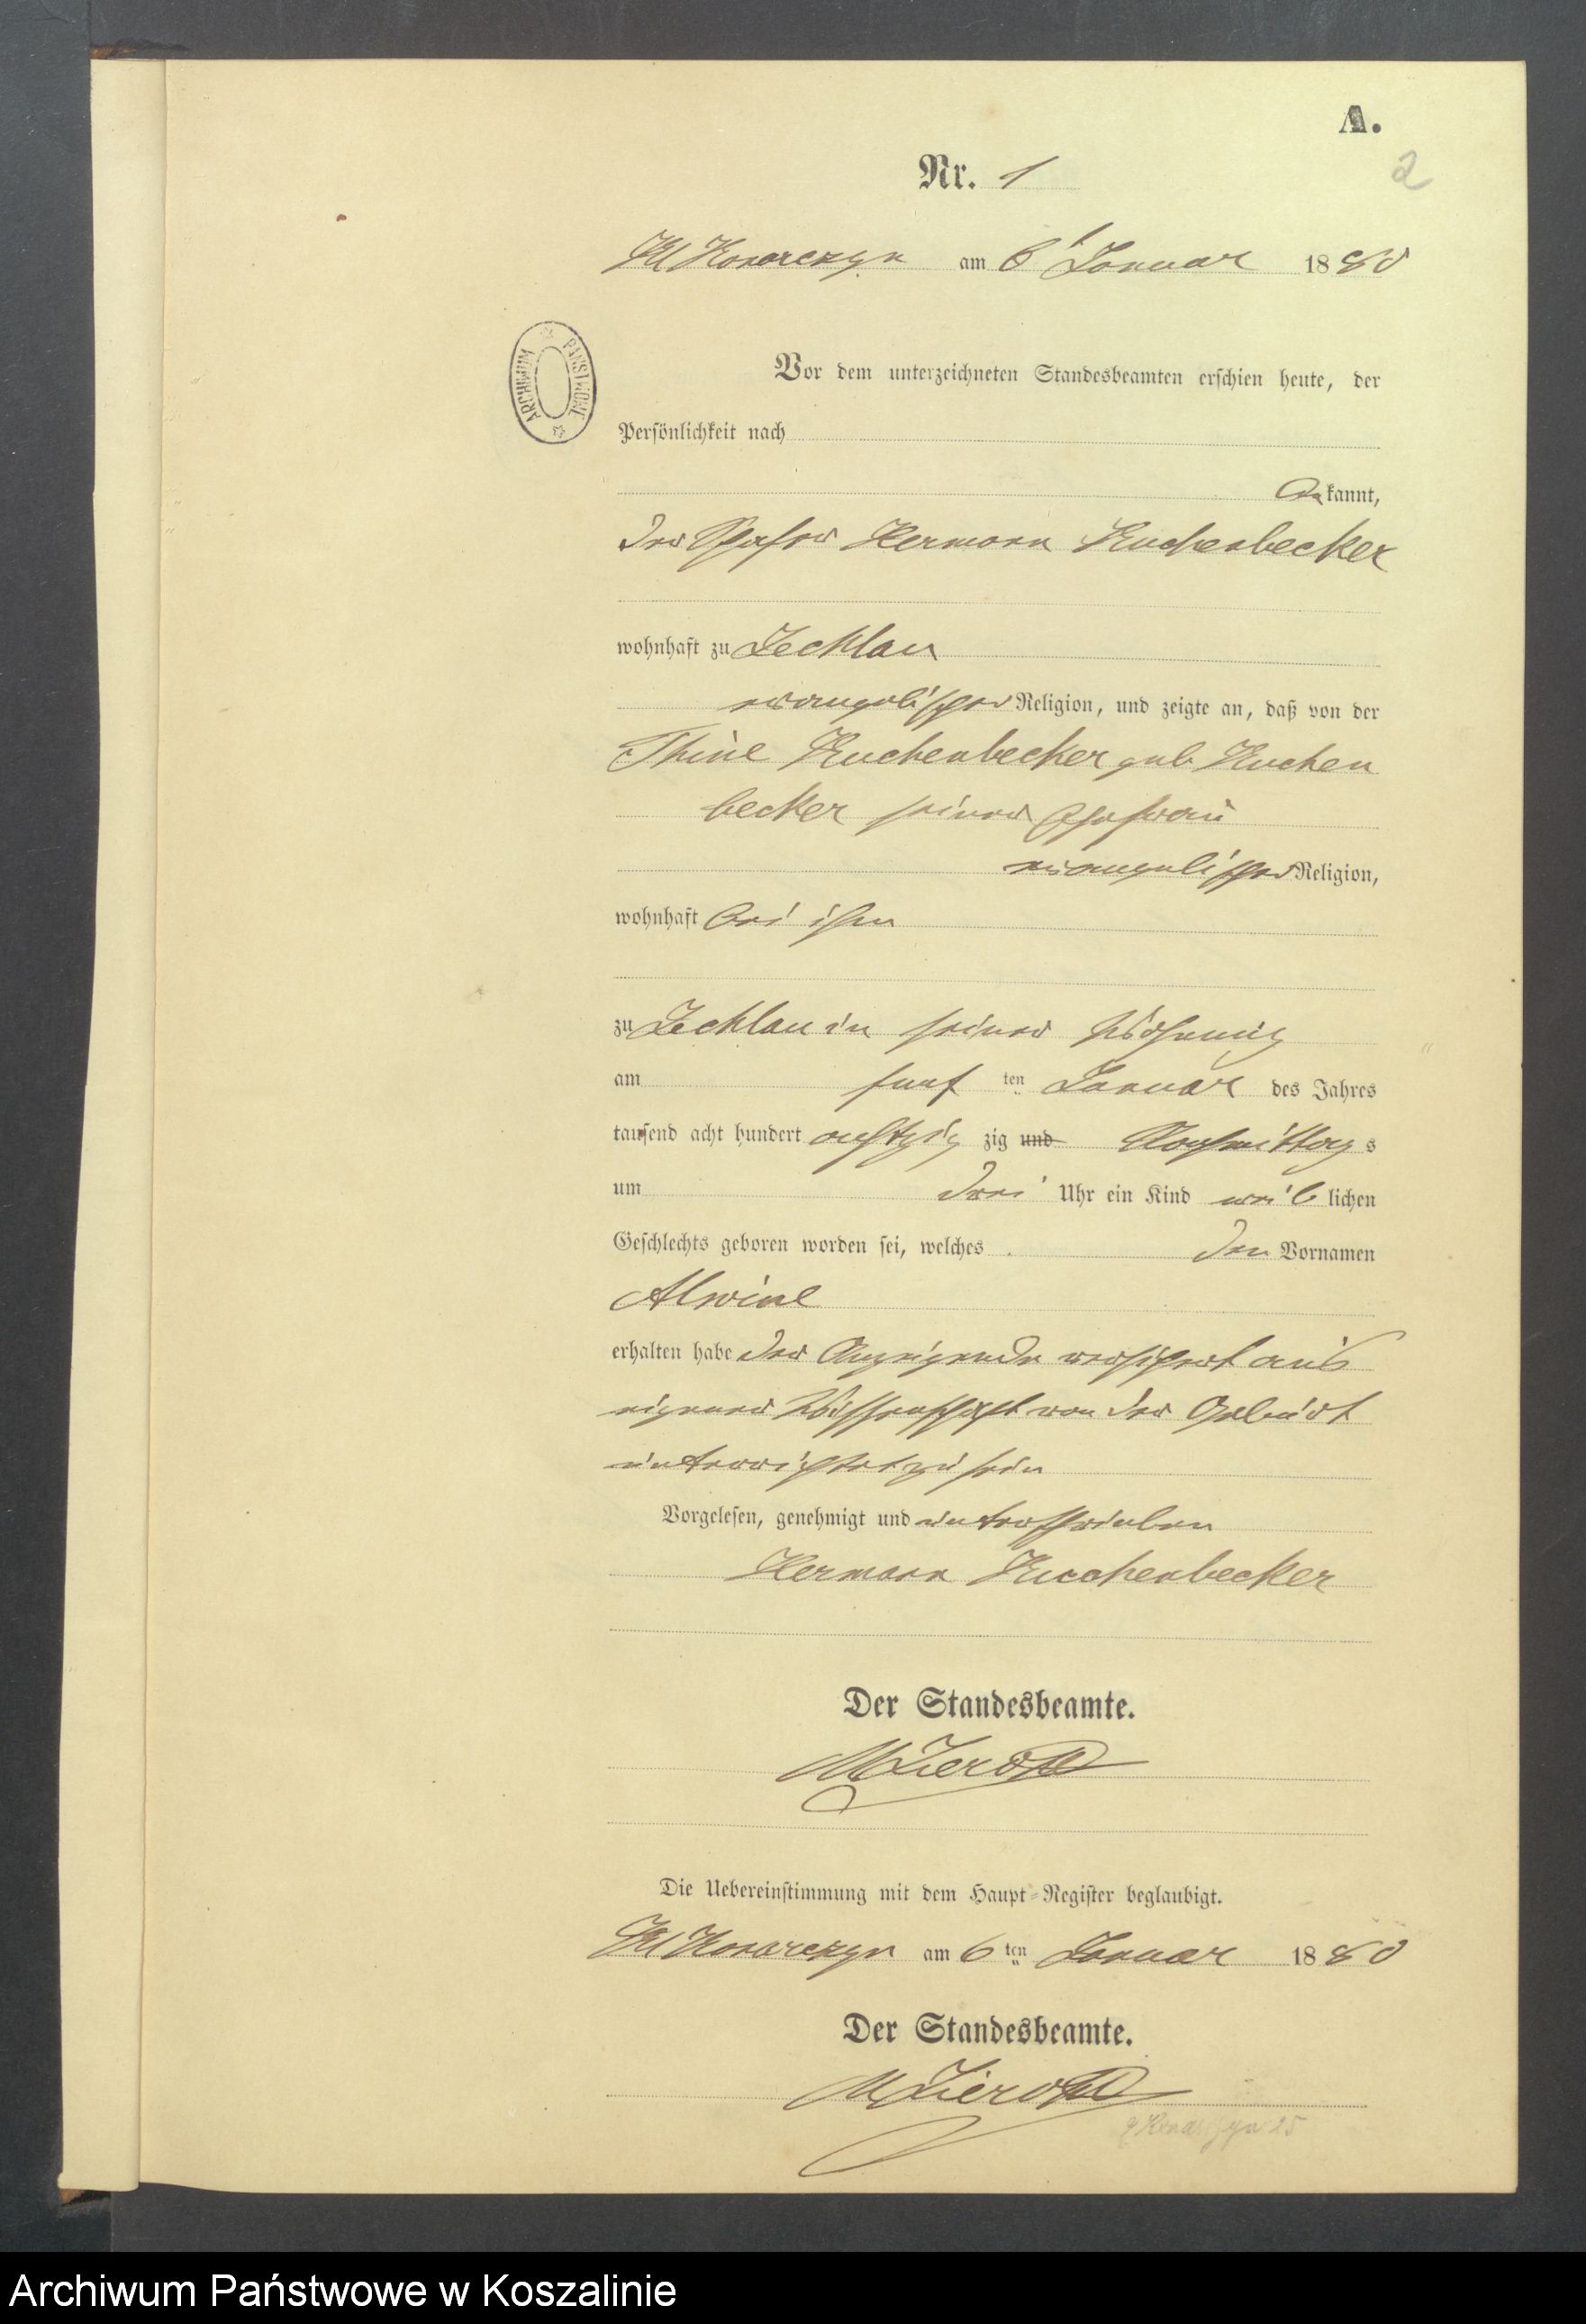 A.
2
Nr. 1
Kl Konarczyn am 6 Januar 1880
ARCHIWUM PAŃSTWOWE
Vor dem unterzeichneten Standesbeamten erschien heute, der
Persönlichkeit nach
bekannt,
der Schäfer Hermann Kuchenbecker
wohnhaft zu Zechlau
evangelischer Religion, und zeigte an, daß von der
Kuchenbecker geb Kuchen
becker seiner Ehefrau
evangelischer Religion,
wohnhaft bei ihm
zu Zechlau in seiner Wohnung
am fünf ten Januar des Jahres
tausend acht hundert achtzig zig und Nachmittag s
um drei Uhr ein Kind weib lichen
Geschlechts geboren worden sei, welches den Vornamen
Alwine
erhalten habe der Anzeigende versichert aus
eigener Wissenschaft von der Geburt
unterrichtet zu sein
Vorgelesen, genehmigt und unterschrieben
Hermann Kuchenbecker
Der Standesbeamte.
Die Uebereinstimmung mit dem Haupt-Register beglaubigt.
Kl Konarczyn am 6 ten Januar 1880
Der Standesbeamte.
Archiwum Państwowe w Koszalinie